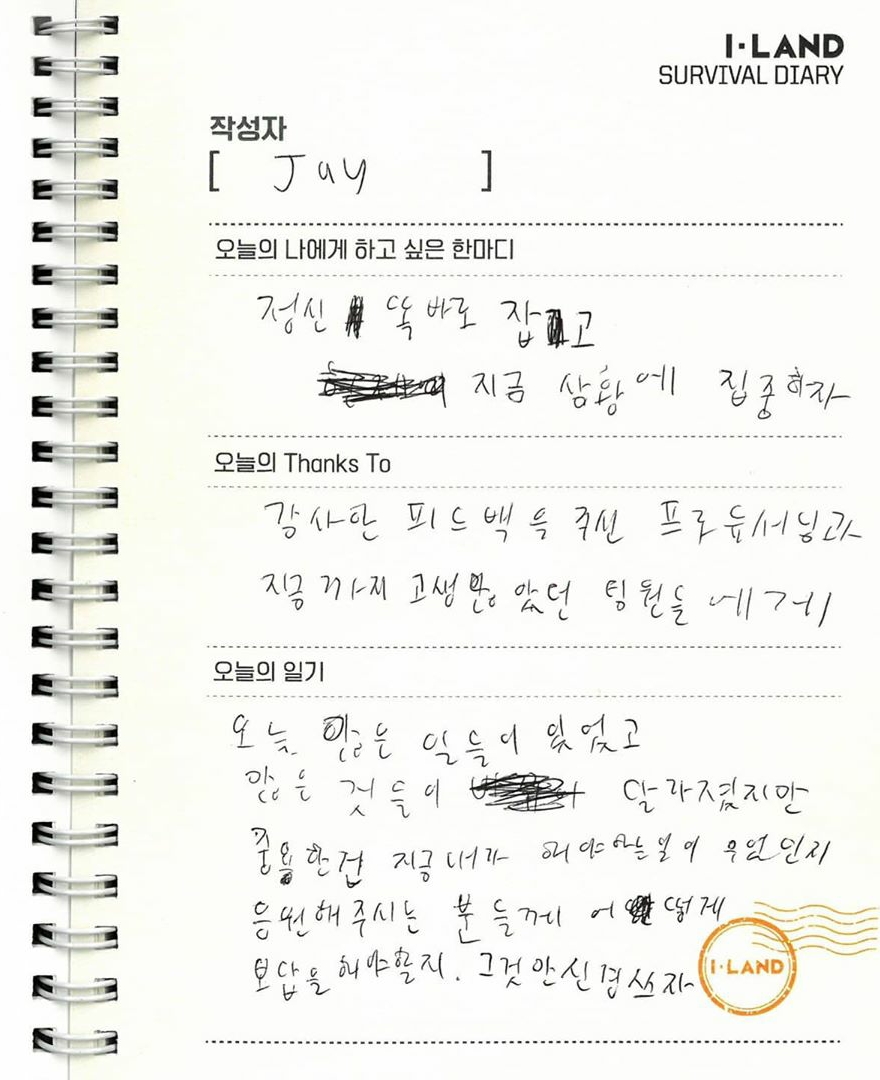 I·LAND
SURVIVAL DIARY
작성자
[ Jay ]
오늘의 나에게 하고 싶은 한마디
정신 똑바로 잡고
지금 상황에 집중하자
오늘의 Thanks To
감사한 피드백을 주신 프로듀서님과
지금까지 고생 많았던 팀원들에게
오늘의 일기
오늘 많은 일들이 있었고
많은 것들이 달라졌지만
중요한건 지금 내가 해야하는 일이 무엇인지
응원해주시는 분들께 어떻게
보답을 해야할지. 그것만 신경쓰자
I·LAND